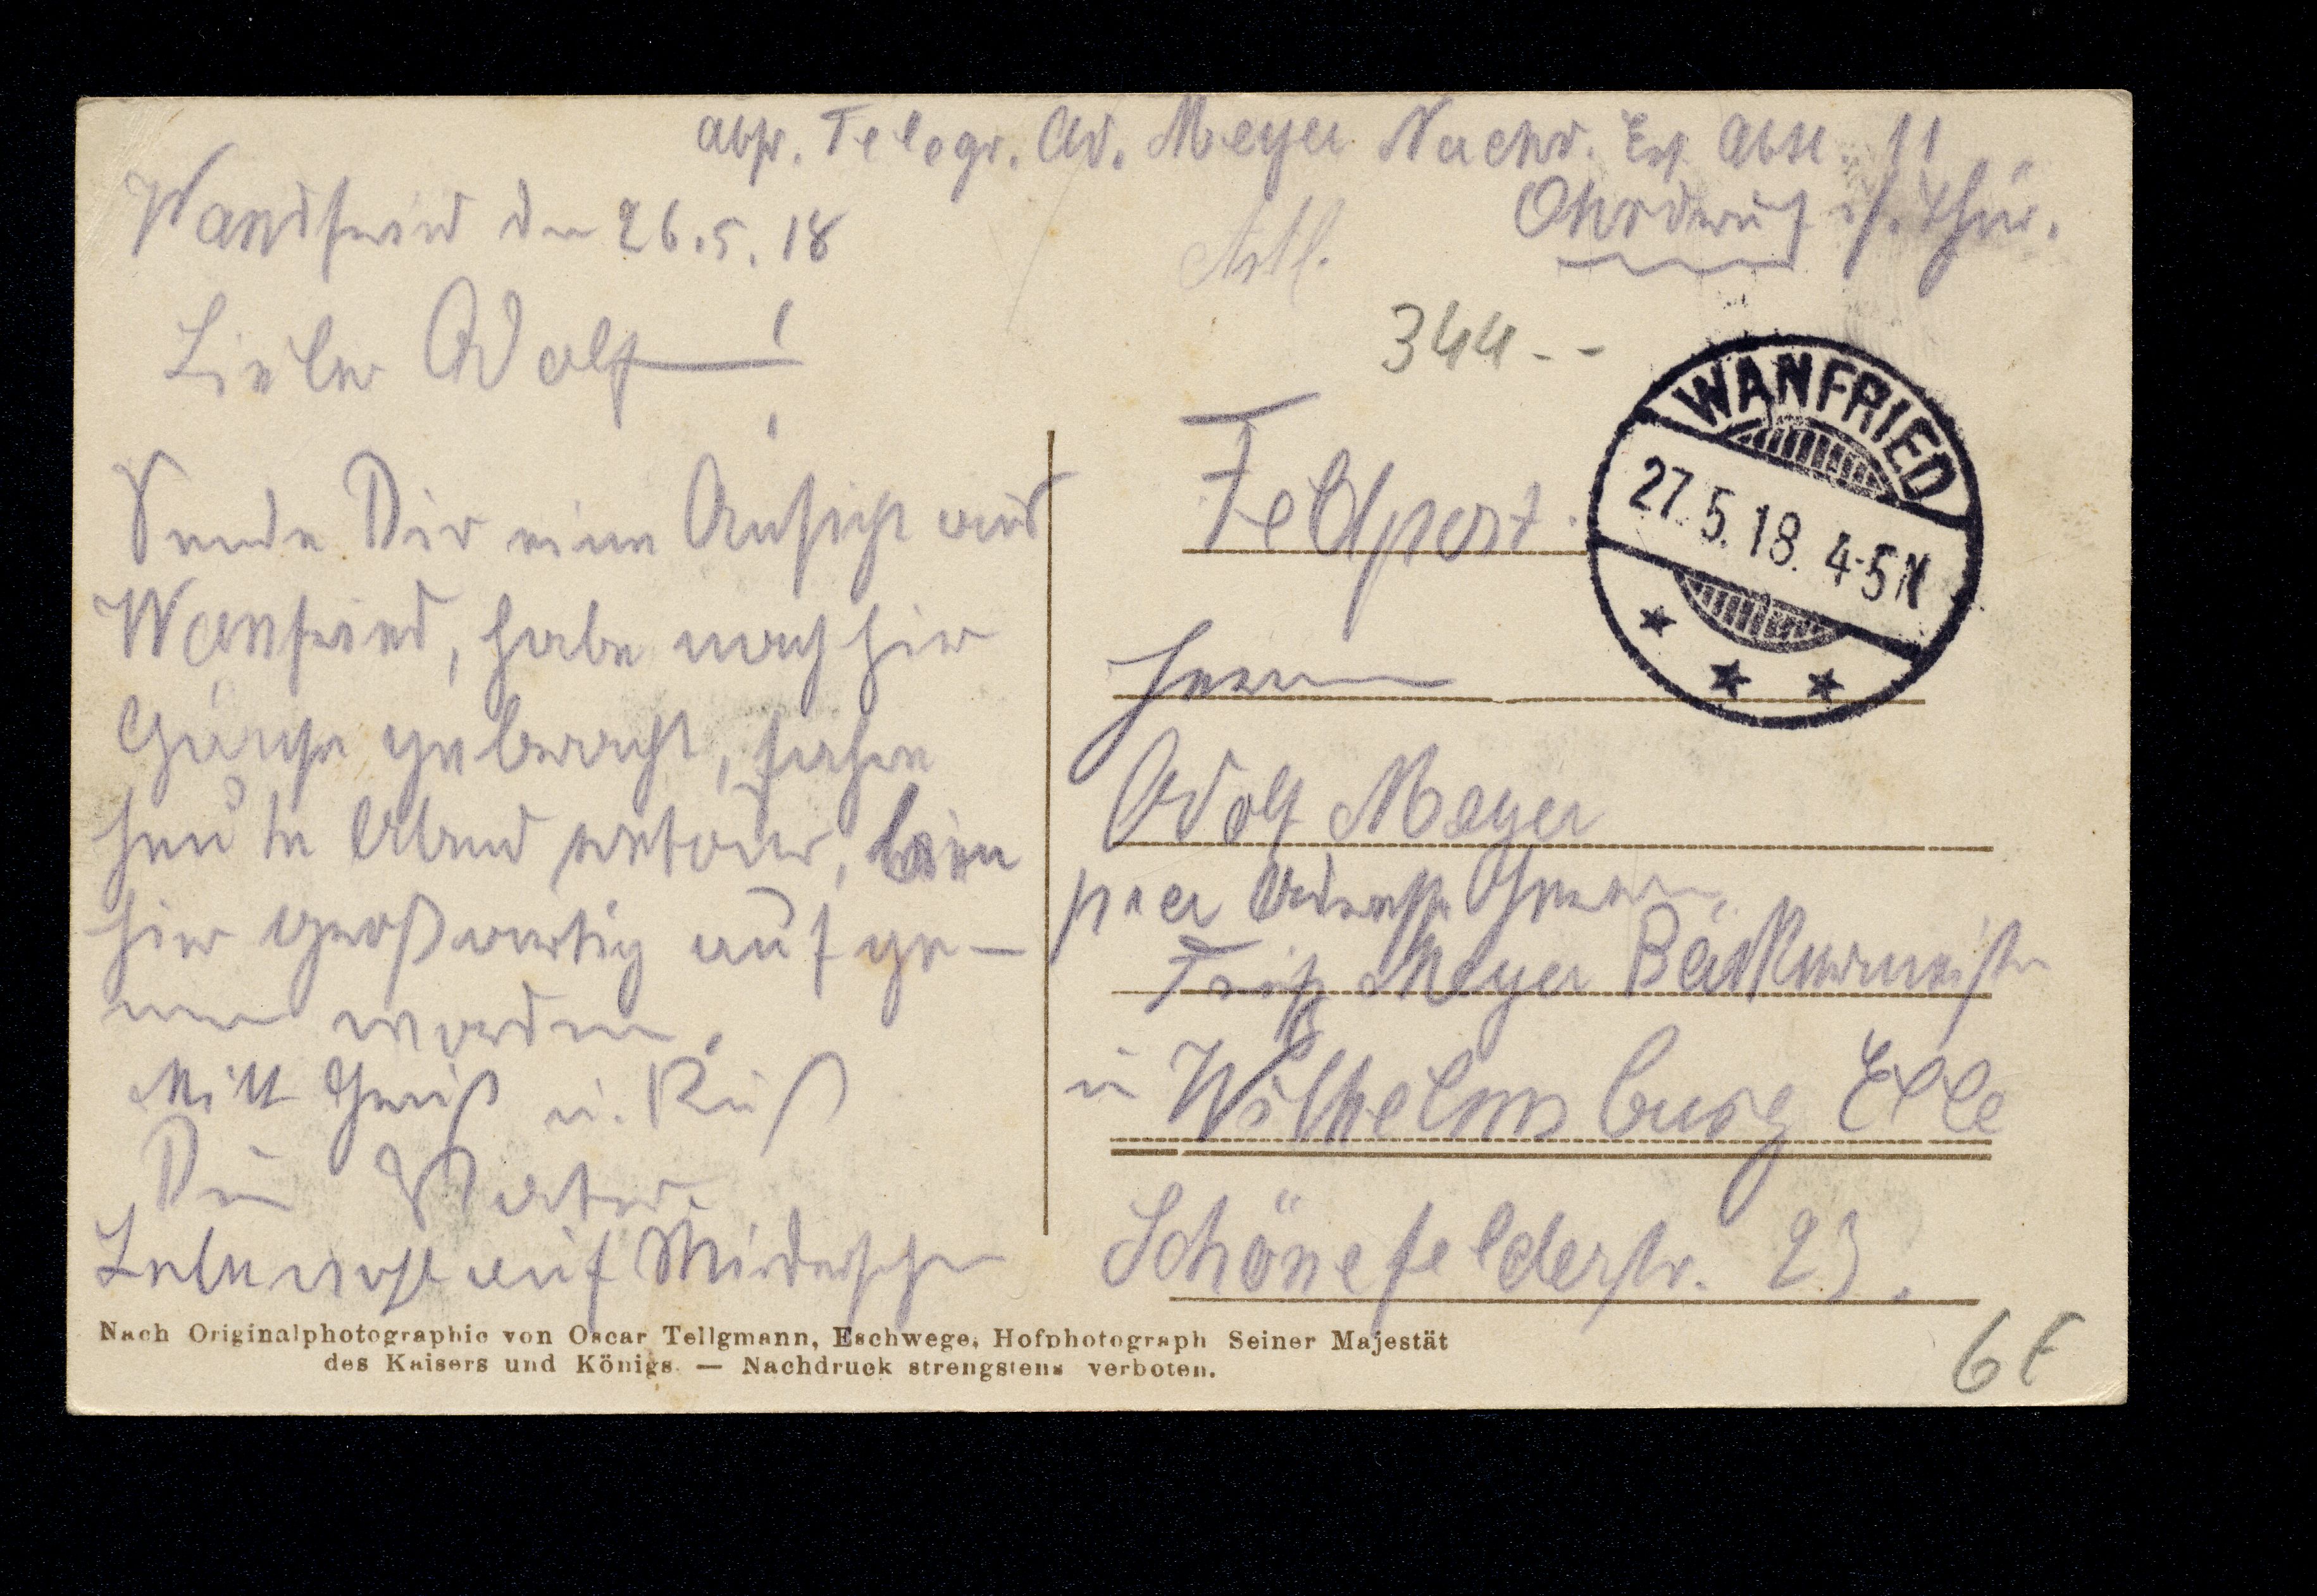 Abs. Telegr. Ad. Meyer Nachr. Ers. Abtl. 11
Ohrdruf i/. Thür.
Wandfried den 26.5.18
Lieber Adolf!
Sende Dir eine Ansicht aus
Wanfried, habe nach hier
gebracht, fahre
heute Abend retour, bin
hier großartig aufge-
nommen worden.
Mitt Gruß u. Kuß
Dein Vater.
Lebewohl auf Wiedersehen
344--
WANFRIED
27.5.18. 4-5N
Feldpost.
Herrn
Adolf Meyer
per Adresse Herrn
Fritz Meyer Bäckermeister
in Wilhelmsburg Elbe
Schönefelderstr. 23.
Nach Originalphotographie von Oscar Tellgmann, Eschwege, Hofphotograph Seiner Majestät
des Kaisers und Königs. — Nachdruck strengstens verboten.